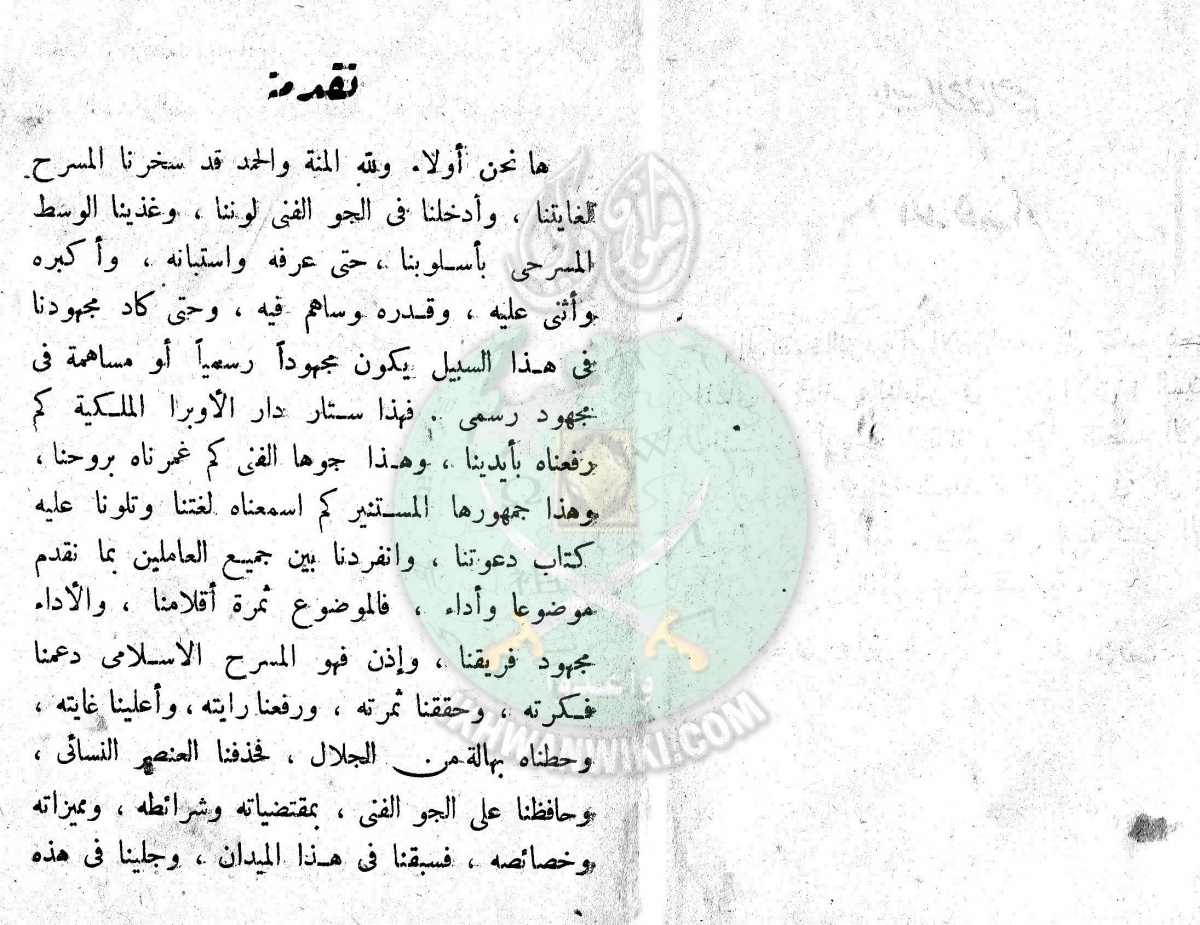 تقدمة
ها نحن أولاء ولله المنة والحمد قد سخرنا المسرح
لغايتنا ، وأدخلنا فى الجو الفنى لوننا ، وغذينا الوسط
المسرحى بأسلوبنا ، حتى عرفه واستبانه ، وأكبره
وأثنى عليه ، وقدره وساهم فيه ، وحتى كاد مجهودنا
فى هذا السبيل يكون مجهوداً رسمياً أو مساهمة فى
مجهود رسمى . فهذا ستار دار الأوبرا الملكية كم
رفعناه بأيدينا ، وهذا جوها الفنى كم غمرناه بروحنا ،
وهذا جمهورها المستنير كم اسمعناه لغتنا وتلونا عليه
كتاب دعوتنا ، وانفردنا بين جميع العاملين بما نقدم
موضوعا وأداء ، فالموضوع ثمرة أقلامنا ، والأداء
مجهود فريقنا ، وإذن فهو المسرح الاسلامى دعمنا
فكرته ، وحققنا ثمرته ، ورفعنا رايته ، وأعلينا غايته ،
وحطناه بهالة من الجلال ، فحذفنا العنصر النسائى ،
وحافظنا على الجو الفنى ، بمقتضياته وشرائطه ، ومميزاته
وخصائصه ، فسبقنا فى هذا الميدان ، وجلينا فى هذه
IKHWANWIKI.COM